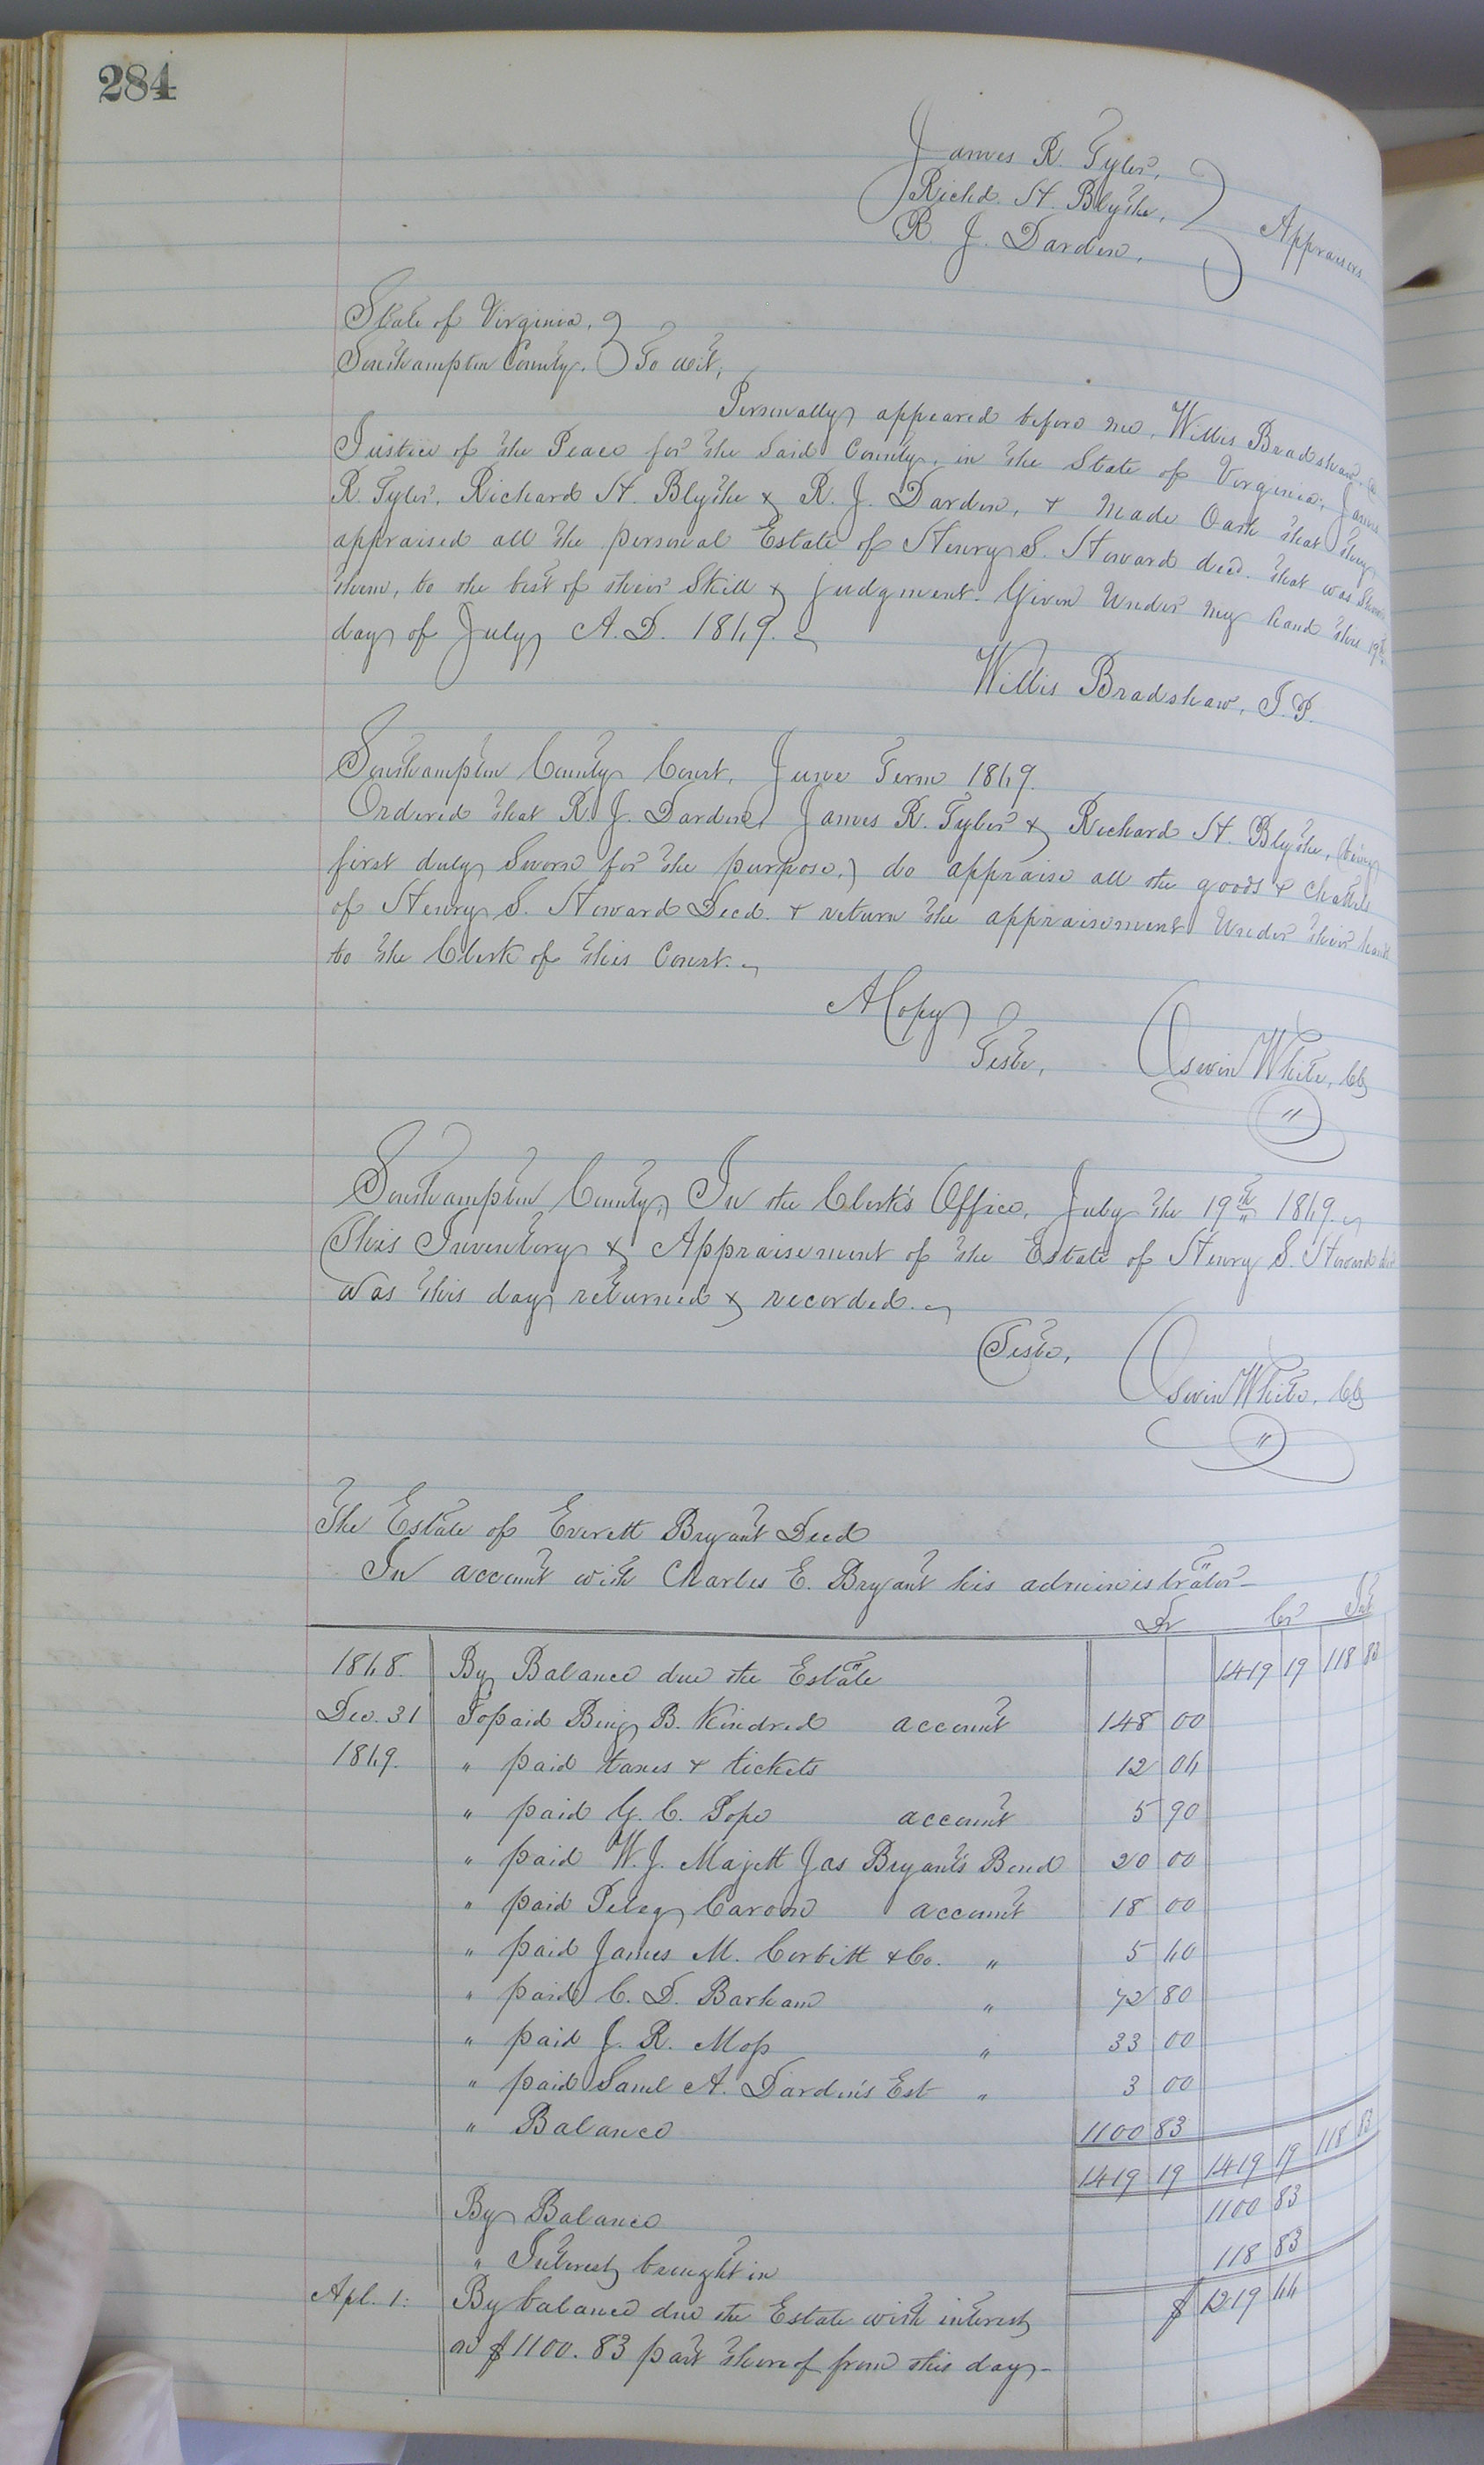 284
James R. Tyler,
Richd. H. Blythe,
R. J. Darden,
Appraisers
State of Virginia,
Southampton County. To wit;
Personally appeared before me, Willis Bradshaw, a
Justice of the Peace for the Said County, in the State of Virginia, James
R. Tyler, Richard H. Blythe & R. J. Darden, & made Oath that they
appraised all the personal Estate of Henry S. Howard decd. that was Shown
them, to the best of their Skill & judgment. Given Under my hand this 19th
day of July A.D. 1869.
Willis Bradshaw, J.P.
Southampton County Court, June Term 1869.
Ordered that R. J. Darden, James R. Tyler & Richard H. Blythe, (being
first duly Sworn for the purpose,) do appraise all the goods & Chattels
of Henry S. Howard Decd. & return the appraisement Under their hands
to the Clerk of this Court.
A Copy
Teste, Oswin White, Clk
Southampton County, In the Clerk's Office, July the 19th 1869.
This Inventory & Appraisement of the Estate of Henry S. Howard decd
was this day returned & recorded.
Teste,
Oswin White, Clk
The Estate of Everett Bryant Decd
In account with Charles E. Bryant his administrator
Dr Cr Int
1868. By Balance due the Estate 1419 19 118 83
Dec. 31 To paid Benj B. Kindred account 148 00
1869. " paid taxes & tickets 12 06
" paid G. C. Pope account 5 90
" paid W. J. Majett Jas Bryant's Bond 20 00
" paid Peleg Carson account 18 00
" paid James M. Corbitt & Co. " 5 60
" paid C. D. Barham " 72 80
" paid J. R. Moss " 33 00
" paid Saml A. Darden's Est " 3 00
" Balance 1100 83
1419 19 1419 19 118 83
By Balance 1100 83
" Interest brought in 118 83
Apl. 1: By balance due the Estate with interest $ 1219 66
on $1100.83 part thereof from this day